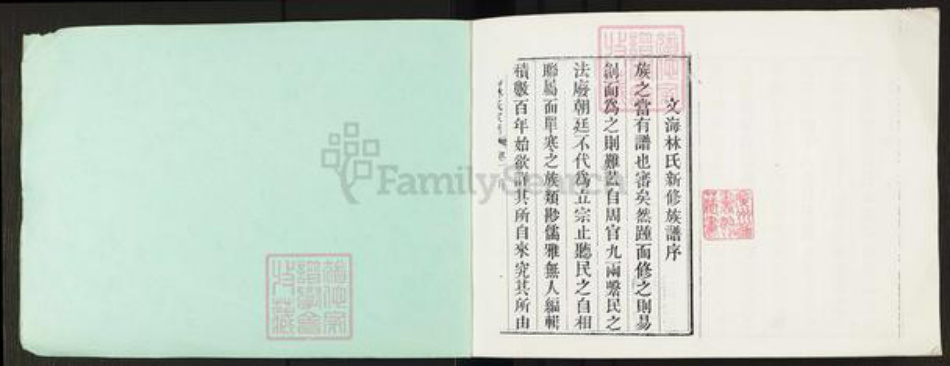 文海林氏新修族譜序
族之當有譜也審矣然踵而修之則易
創而為之則難蓋自周官九兩繫民之
法廢朝廷不代為立宗止聽民之自相
聯屬而單寒之族類尠儒雅無人編輯
積數百年始欲詳其所自來究其所由
FamilySearch